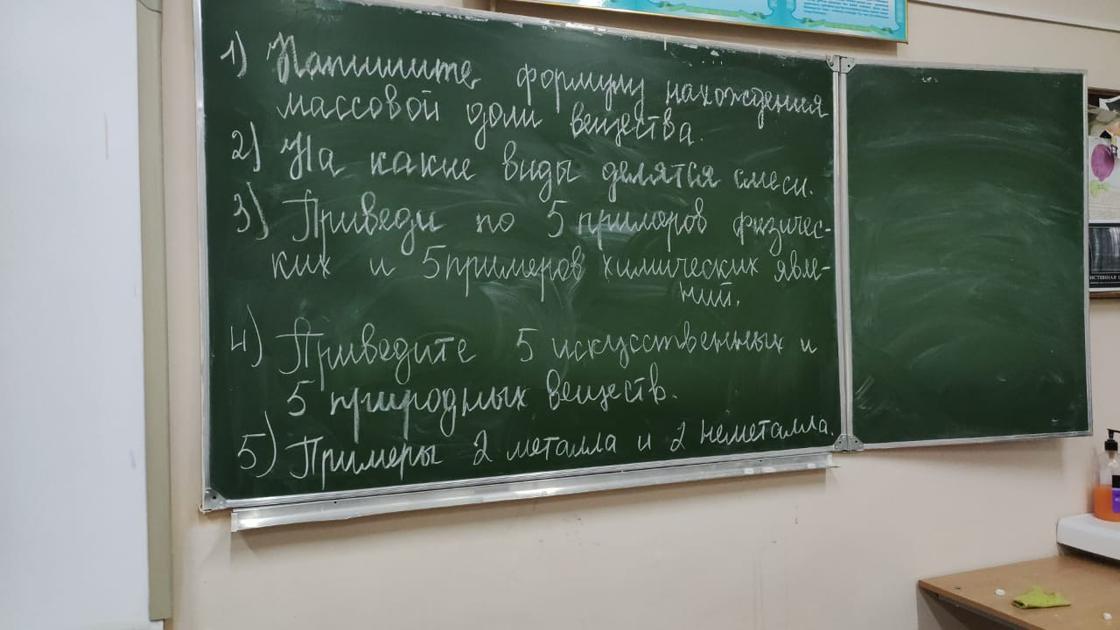 1) Напишите формулу нахождения
массовой доли вещества.
2) На какие виды делятся смеси.
3) Приведи по 5 примеров физичес-
ких и 5 примеров химических явле-
ний.
4) Приведите 5 искусственных и
5 природных веществ.
5) Примеры 2 металла и 2 неметалла.